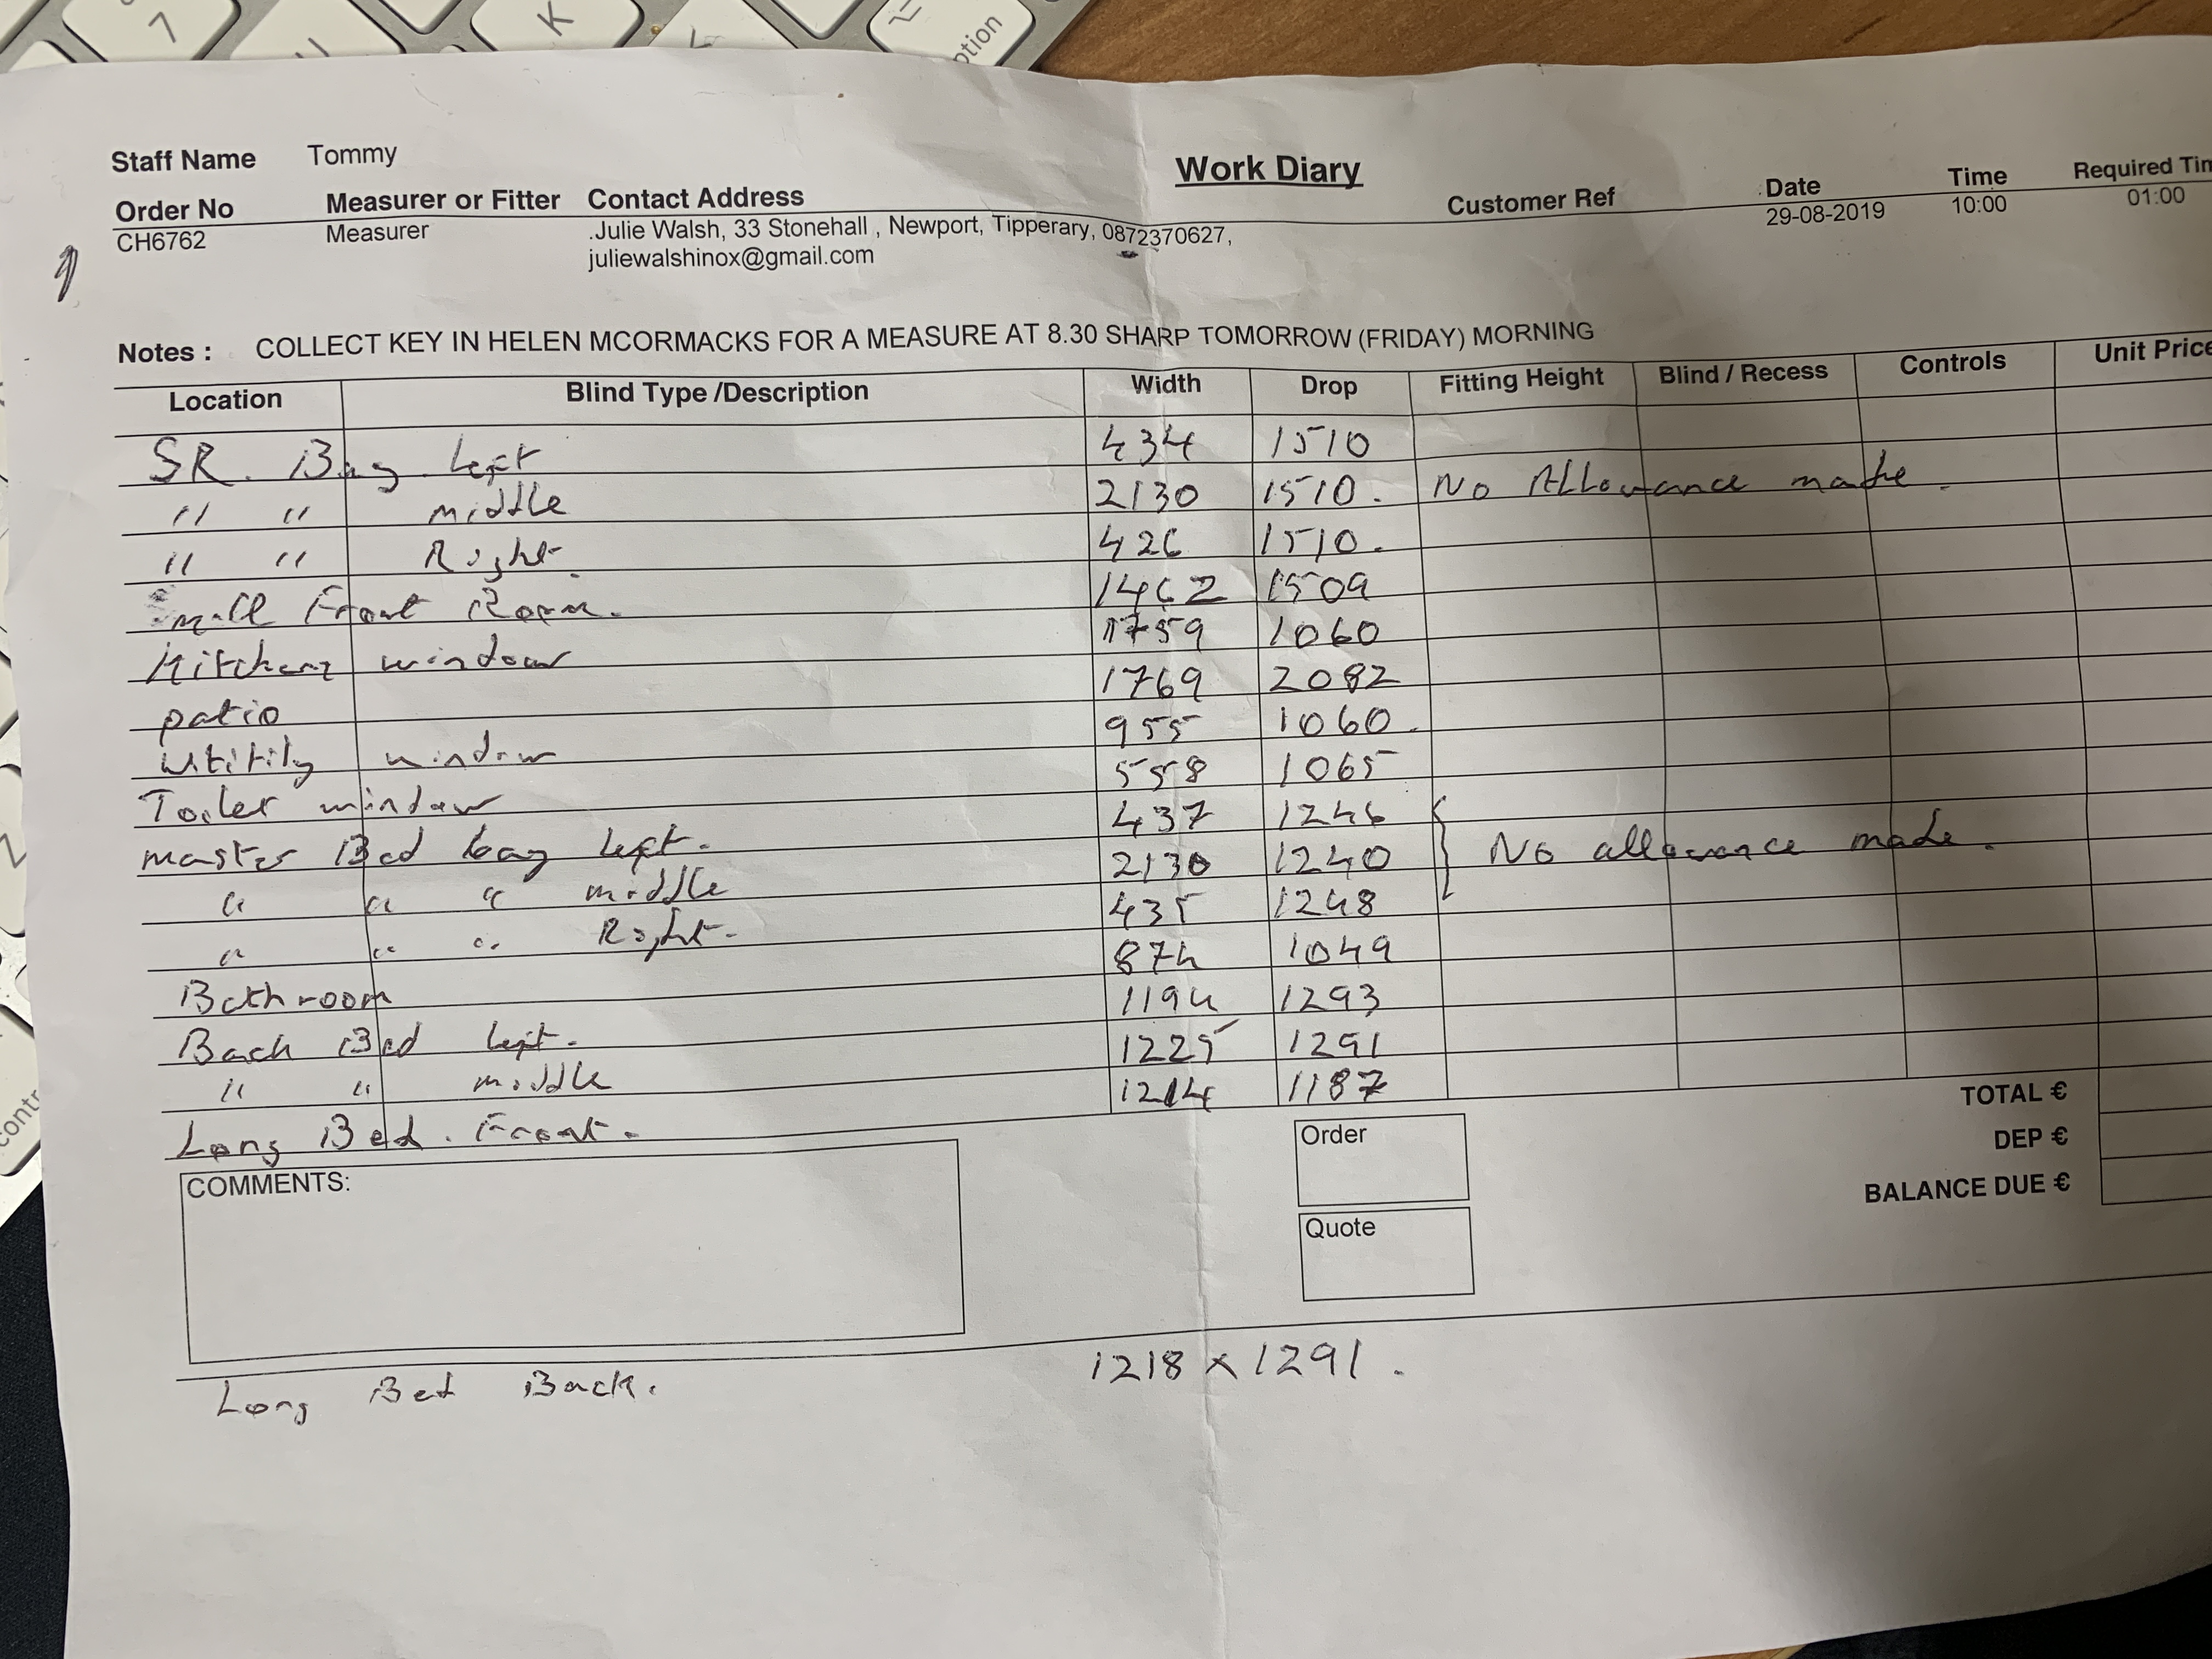 7 K option
Staff Name Tommy
Work Diary
Order No Measurer or Fitter Contact Address Customer Ref Date Time Required Tim
CH6762 Measurer .Julie Walsh, 33 Stonehall , Newport, Tipperary, 0872370627, 29-08-2019 10:00 01:00
juliewalshinox@gmail.com
Notes : COLLECT KEY IN HELEN MCORMACKS FOR A MEASURE AT 8.30 SHARP TOMORROW (FRIDAY) MORNING
Location Blind Type /Description Width Drop Fitting Height Blind / Recess Controls Unit Price
SR. Bay Left 434 1510
" " middle 2130 1510. No Allowance made.
" " Right. 426 1510.
Small Front Room. 1462 1509
Kitchen window 1759 1060
patio 1769 2082
Utitily window 955 1060.
Toilet window 558 1065
master Bed bay left. 437 1246
" " " middle 2130 1240 No allowance made.
" " " Right. 435 1248
Bathroom 874 1049
Back Bed left. 1194 1293
" " middle 1225 1291
Long Bed. Front. 1214 1187
COMMENTS:
Order
Quote
TOTAL €
DEP €
BALANCE DUE €
Long Bed Back. 1218 x 1291.
contr